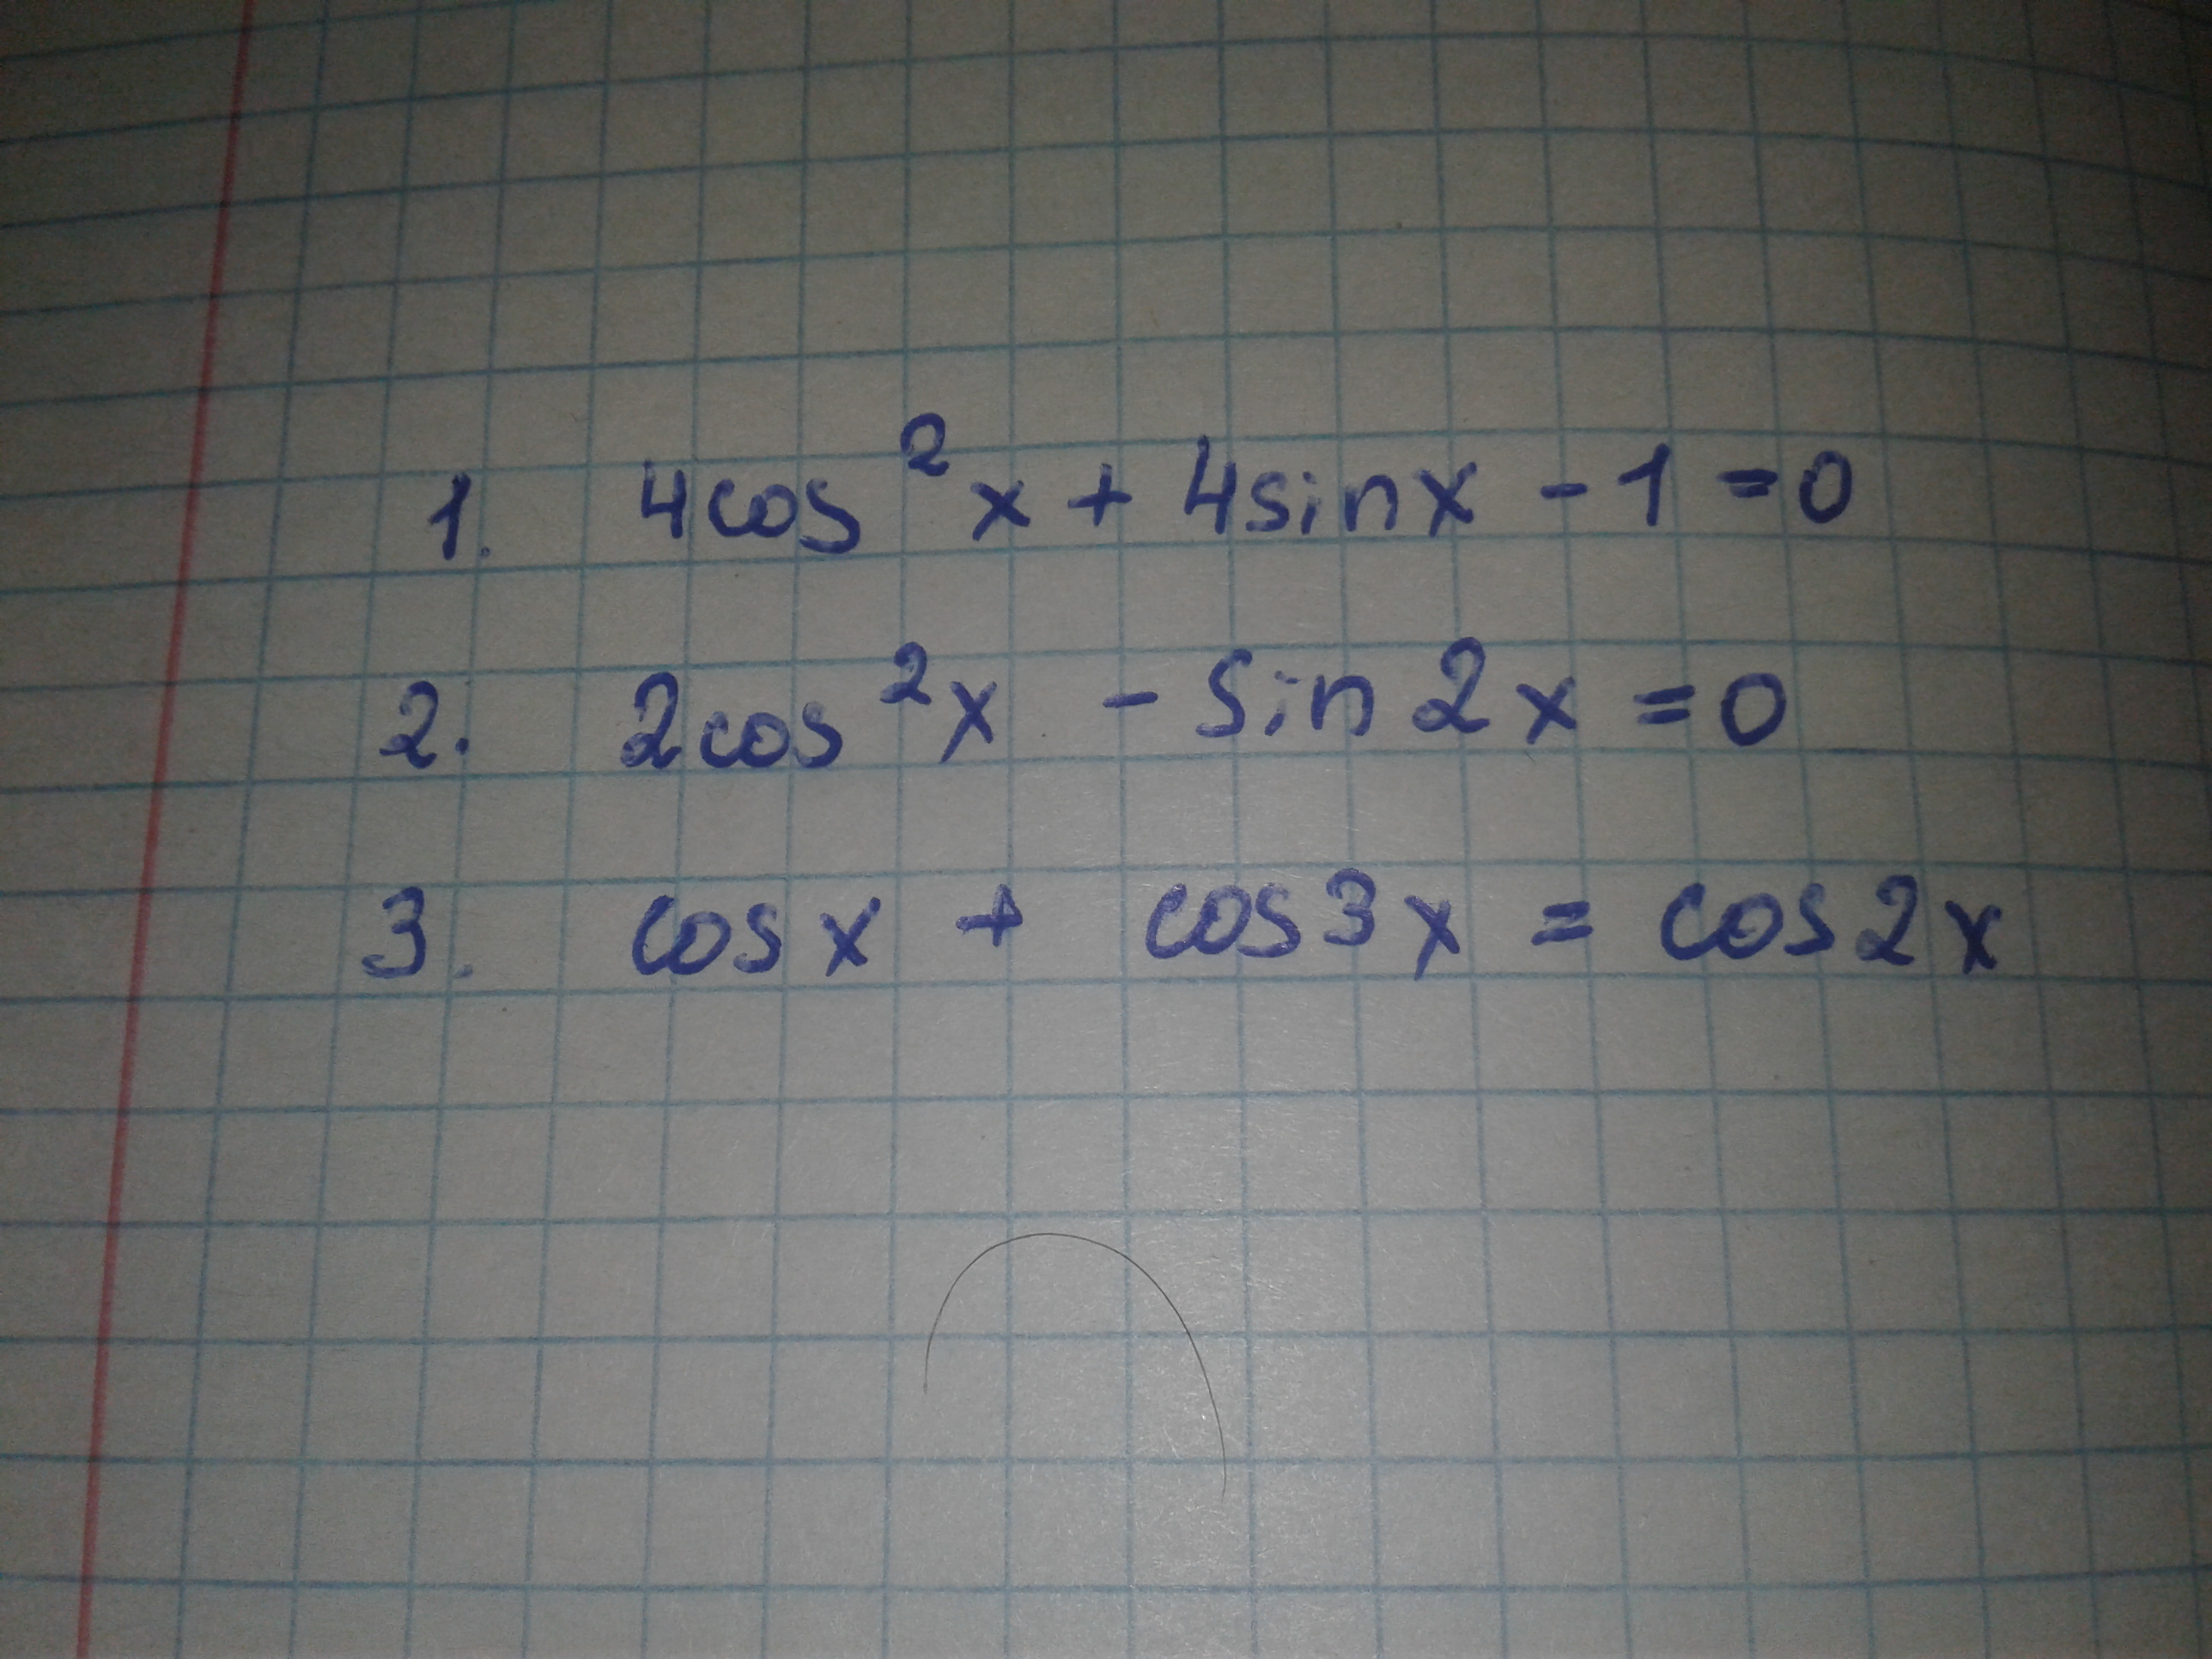 1. 4cos²x + 4sinx - 1 = 0
2. 2cos²x - sin2x = 0
3. cosx + cos3x = cos2x